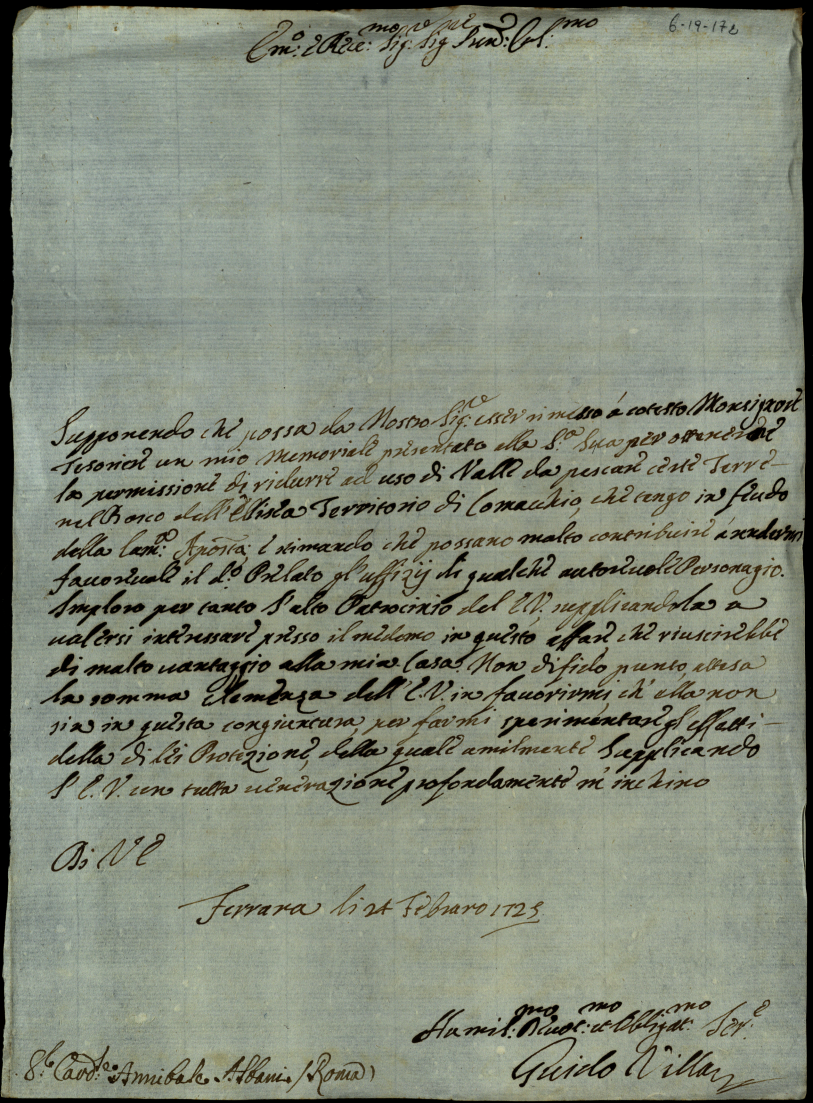 6-19-172
Em:º e Rev:mo Sig:re Sig:re Pron: Col:mo
Supponendo che possa da Nostro Sig:re esser rimesso à cotesto Monsignore
Tesoriere un mio Memoriale presentato alla S:tà Sua per ottenere
la permissione di ridurre ad uso di Valle da pescare certe Terre
nel Bosco dell'Elisea Territorio di Comacchio, che tengo in feudo
della Cam:ra Apost:ca; e stimando che possano molto contribuire à rendermi
favorevole il d:º Prelato gl'uffizij di qualche autorevole Personagio.
Imploro per tanto l'alto Patrocinio del E.V. supplicandola a
volersi interessare presso il medemo in questo affare che riuscirebbe
di molto vantaggio alla mia Casa. Non difido punto, attesa
la somma Clemenza dell'E.V. in favorirmi, ch'ella non
sia in questa congiuntura, per farmi sperimentare gl'effetti
della di lei Protezione, della quale umilmente Supplicando
l'E.V. con tutta venerazione profondamente m'inchino
Di V E
Ferrara li 24 Febraro 1725
Humil:mo Devot:mo et Obligat:mo Ser:e
Guido Villa
S:r Card:le Annibale Albani (Roma)